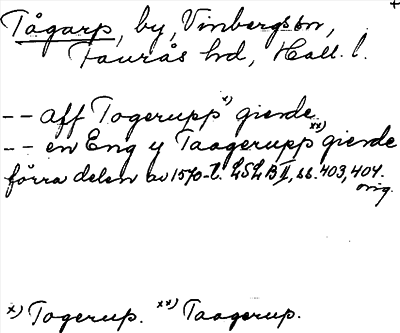 +
Tågarp, by, Vinbergs sn,
Faurås hd, Hall. l.
-- aff Togerupp x) gierde.
-- en Eng y Taagerupp xx) gierde
förra delen av 1570-t. LSLB II, ss. 403, 404.
orig.
x) Togerup. xx) Taagerup.